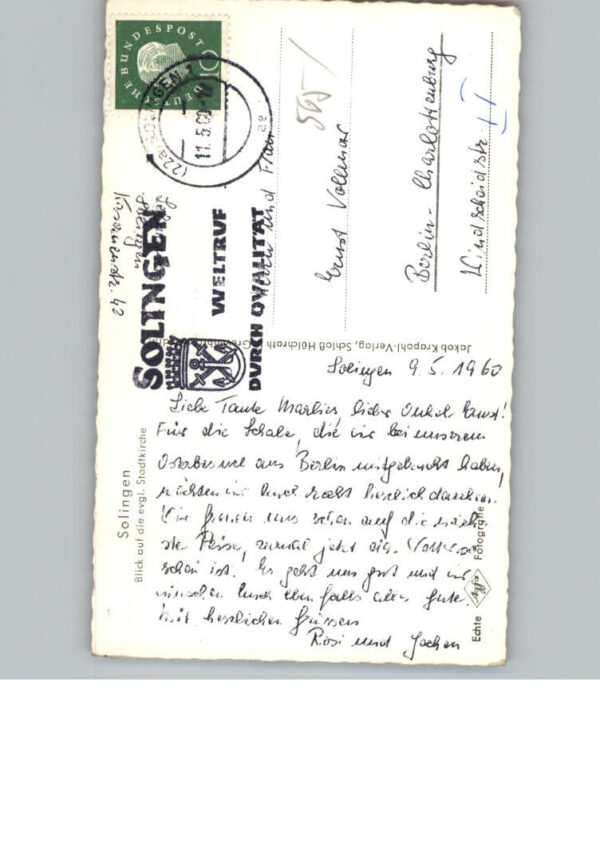 DEUTSCHE BUNDESPOST
10
(22a) SOLINGEN 1
11.5.60
SOLINGEN
WELTRUF
DURCH QUALITÄT
Solingen
42
Herrn und Frau
565/
Ernst Vollmar
Berlin-Charlottenburg
Windscheidstr.
Jakob Krapohl-Verlag, Schloß Hülchrath
Solingen
Blick auf die evgl. Stadtkirche
Echte Agfa Fotografie
Solingen 9.5.1960
Liebe Tante Marlies, lieber Onkel Ernst!
Für die Schale, die wir bei unserem
Osterbesuch aus Berlin mitgebracht haben,
möchten wir Euch recht herzlich danken.
Wir freuen uns schon auf die näch-
ste Reise, zumal jetzt das Wetter so
schön ist. Es geht uns gut und wir
wünschen Euch ebenfalls alles Gute.
Mit herzlichen Grüssen
Rosi und Jochen